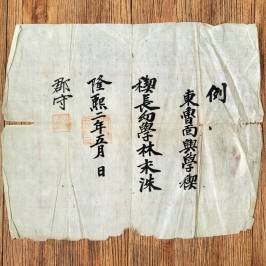 例
東曾面興學稧
稧長幼學林禾洙
隆熙二年五月 日
郡守